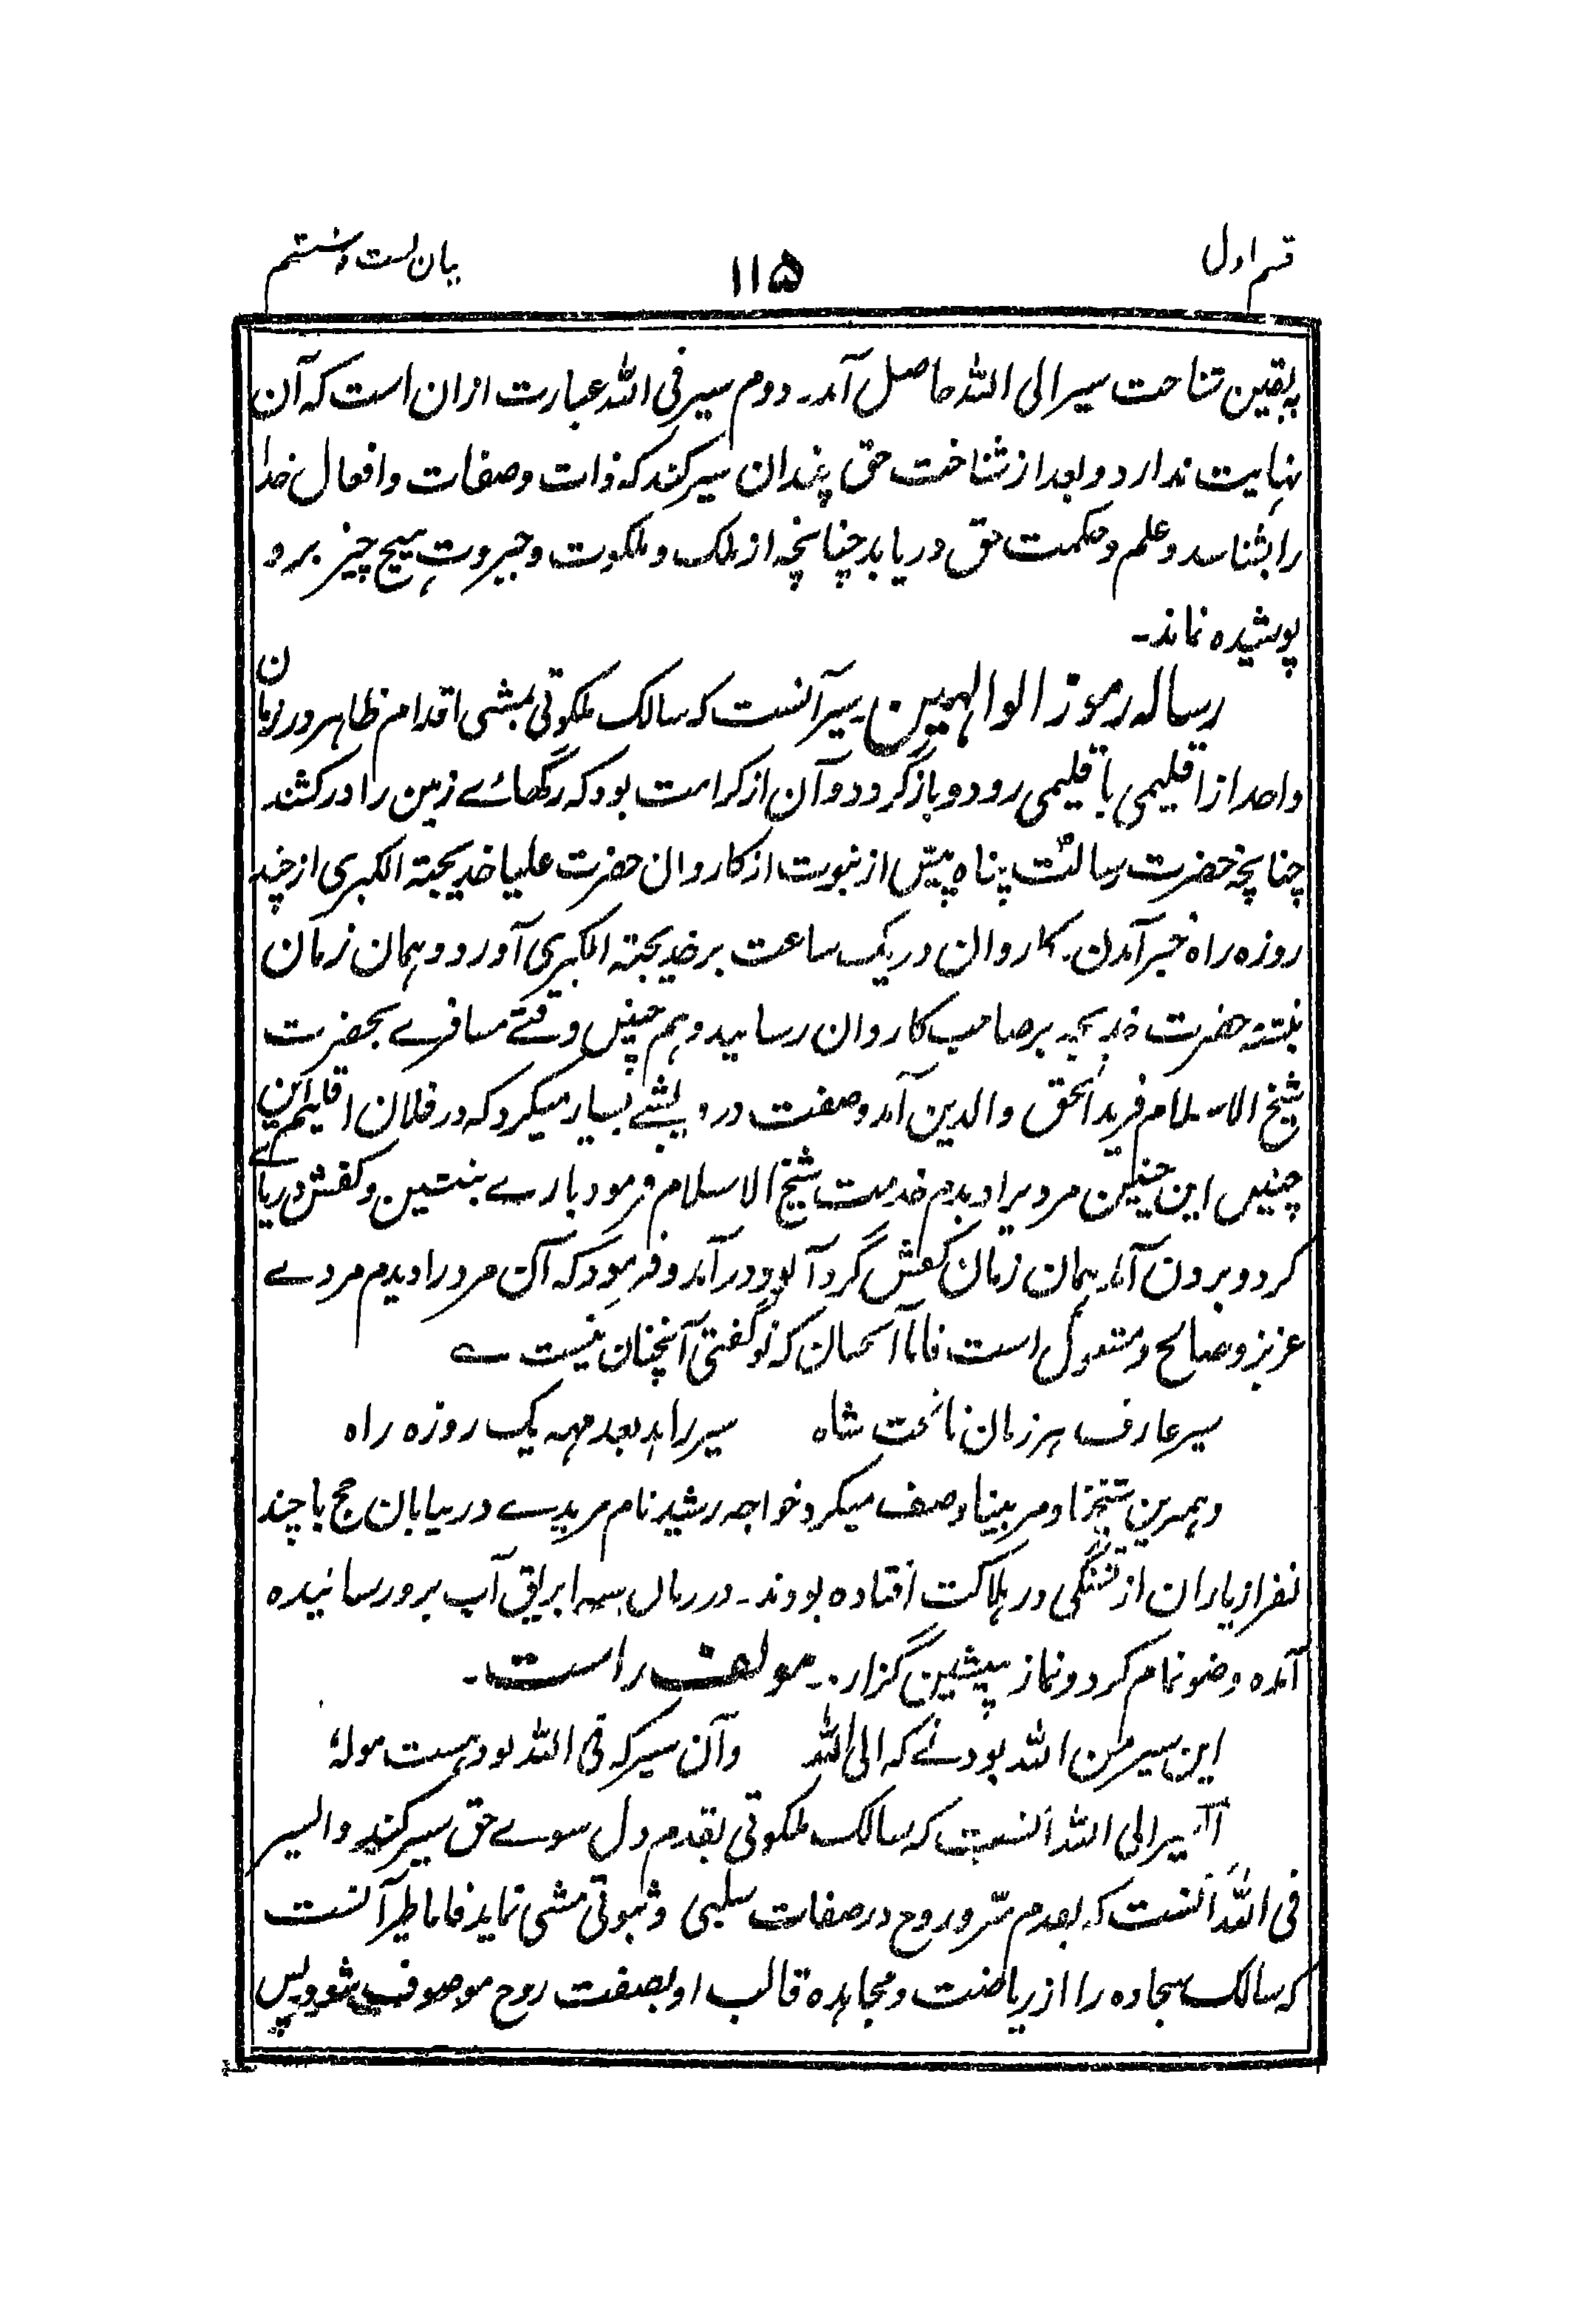 قسم اول
۱۱۵
بیان بست وہشتم
بہ یقین شناخت سیر الی اللہ حاصل آمد۔ دوم سیر فی اللہ عبارت ازان است کہ آن
نہایت ندارد و بعد از شناخت حق چندان سیر کند کہ ذات وصفات وافعال خدا
را بشناسد وعلم وحکمت حق دریابد چنانچہ از ملک وملکوت وجبروت ہیچ چیز برو
پوشیدہ نماند۔
رسالہ رموز الوالہین۔ سیر آنست کہ سالک ملکوتی بمشی اقدام ظاہر در زمان
واحد از اقلیمی باقلیمی رود و باز گردد وآن از کرامت بود کہ رگھائے زمین را درکشند
چنانچہ حضرت رسالت پناہ پیش از نبوت از کاروان حضرت علیا خدیجتہ الکبری از چند
روزہ راہ خبر آمدن کاروان در یک ساعت بر خدیجتہ الکبری آورد وہمان زمان
نبشتہ حضرت خدیجہ بر صاحب کاروان رسانید وہم چنیں وقتے مسافرے بحضرت
شیخ الاسلام فرید الحق والدین آمد وصفت درویشے بسیار میکرد کہ در فلان اقلیم این
چنیں این چنین مردیرا دیدم خدمت شیخ الاسلام فرمود بارے بنشین وکفش در پائے
کرد و برون آمد ہمان زمان کفش گرد آلود در آمد و فرمود کہ آن مرد را دیدم مردے
عزیز وصالح ومتعبد است فاما آنچنان کہ تو گفتی آنچنان نیست ے
سیر عارف ہر زمان تا تخت شاہ سیر زاہد بعد مہہ یک روزہ راہ
وہمرین وصف میکرد خواجہ رشید نام مریدے در بیابان حج با چند
نفر از یاران از تشنگی در ہلاکت افتادہ بودند۔ در زمان سہ ابریق آب برو رسانیدہ
آمدہ وضو تمام کرد و نماز پیشین گزارد۔ مولف راست۔
این سیر من اللہ بود نے کہ الی اللہ وآن سیر کہ فی اللہ بود ہست مولہ
السیر الی اللہ آنست کہ سالک ملکوتی بقدم دل سوے حق سیر کند والسیر
فی اللہ آنست کہ بقدم سر و روح در صفات سلبی وثبوتی مشی نماید فاما طیر آنست
کہ سالک سجادہ را از ریاضت ومجاہدہ قالب او بصفت روح موصوف شود پس